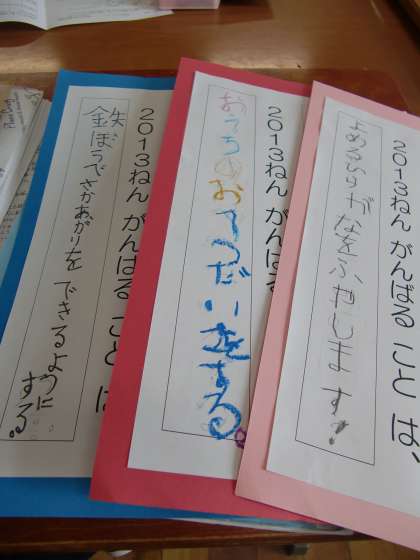 2013ねん がんばる こと は、
よめるひらがなをふやします!
2013ねん がんばる
おうちのおてつだいをする。
2013ねん がんばる こと は
鉄ぼうでさかあがりをできるように
する。